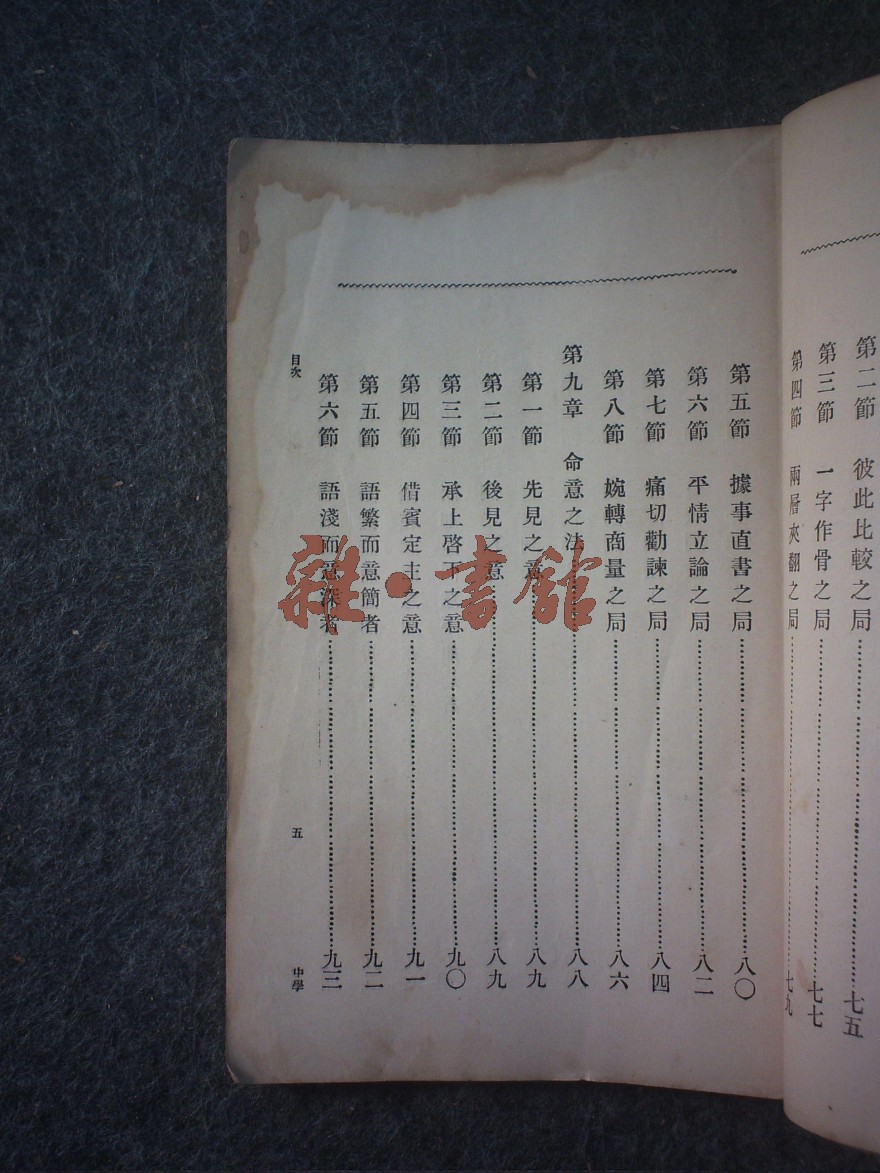 第二節　彼此比較之局……七五
第三節　一字作骨之局……七七
第四節　兩層夾翻之局……七九
第五節　據事直書之局……八〇
第六節　平情立論之局……八二
第七節　痛切勸諫之局……八四
第八節　婉轉商量之局……八六
第九章　命意之法……八八
第一節　先見之意……八九
第二節　後見之意……八九
第三節　承上啓下之意……九〇
第四節　借賓定主之意……九一
第五節　語繁而意簡者……九二
第六節　語淺而意深者……九三
目次　五　中學
雜·書館